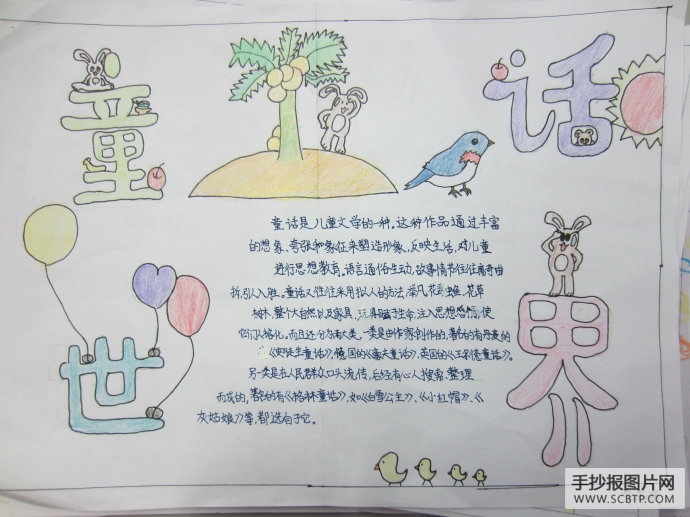 童话
世界
童话是儿童文学的一种,这种作品通过丰富
的想象、夸张和象征来塑造形象,反映生活,对儿童
进行思想教育,语言通俗生动,故事情节往往离奇曲
折,引人入胜。童话又往往采用拟人的方法,举凡花鸟虫鱼,花草
树木,整个大自然以及家具,玩具赋于生命,注入思想感情,使
它们人格化。而且还分为两大类,一类是由作家创作的,著名的有丹麦的
《安徒生童话》,德国的《豪夫童话》,英国的《王尔德童话》。
另一类是在人民群众口头流传,后经有心人搜索、整理
而成的,著名的有《格林童话》,如《白雪公主》、《小红帽》、《
灰姑娘》等,都选自于它。
手抄报图片网
WWW.SCBTP.COM